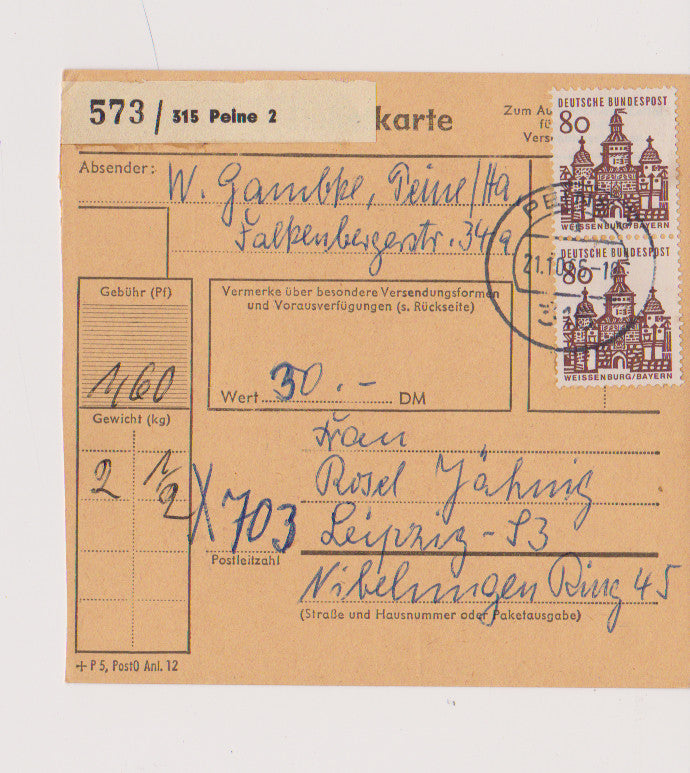 573 / 315 Peine 2
karte
Zum Au
fü
Vers
DEUTSCHE BUNDESPOST
80
WEISSENBURG/BAYERN
DEUTSCHE BUNDESPOST
80
WEISSENBURG/BAYERN
PE
21.10.65-18
Absender: W. Gambke, Peine/Ha.
Falkenbergerstr. 34a
Gebühr (Pf)
1,60
Vermerke über besondere Versendungsformen
und Vorausverfügungen (s. Rückseite)
Wert 30.- DM
Gewicht (kg)
2 1/2
Frau
Rosel Jähnig
X 703 Leipzig - S3
Postleitzahl
Nibelungen Ring 45
(Straße und Hausnummer oder Paketausgabe)
+ P 5, PostO Anl. 12